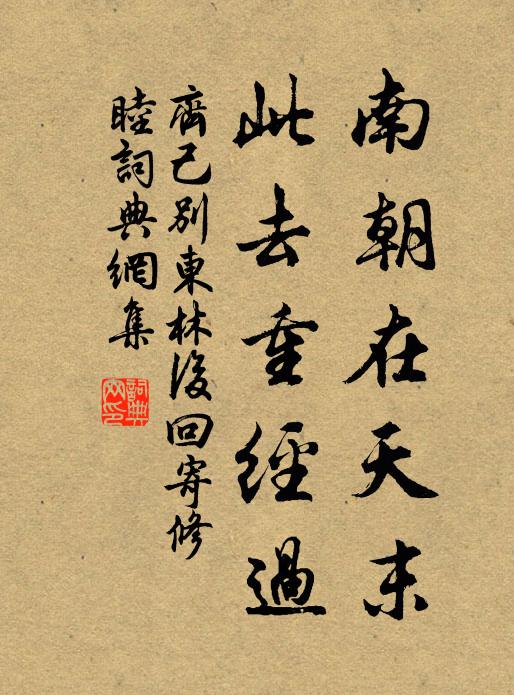 南朝在天末
此去重經過
齊己别東林後回寄修
睦詞典網集
詞典